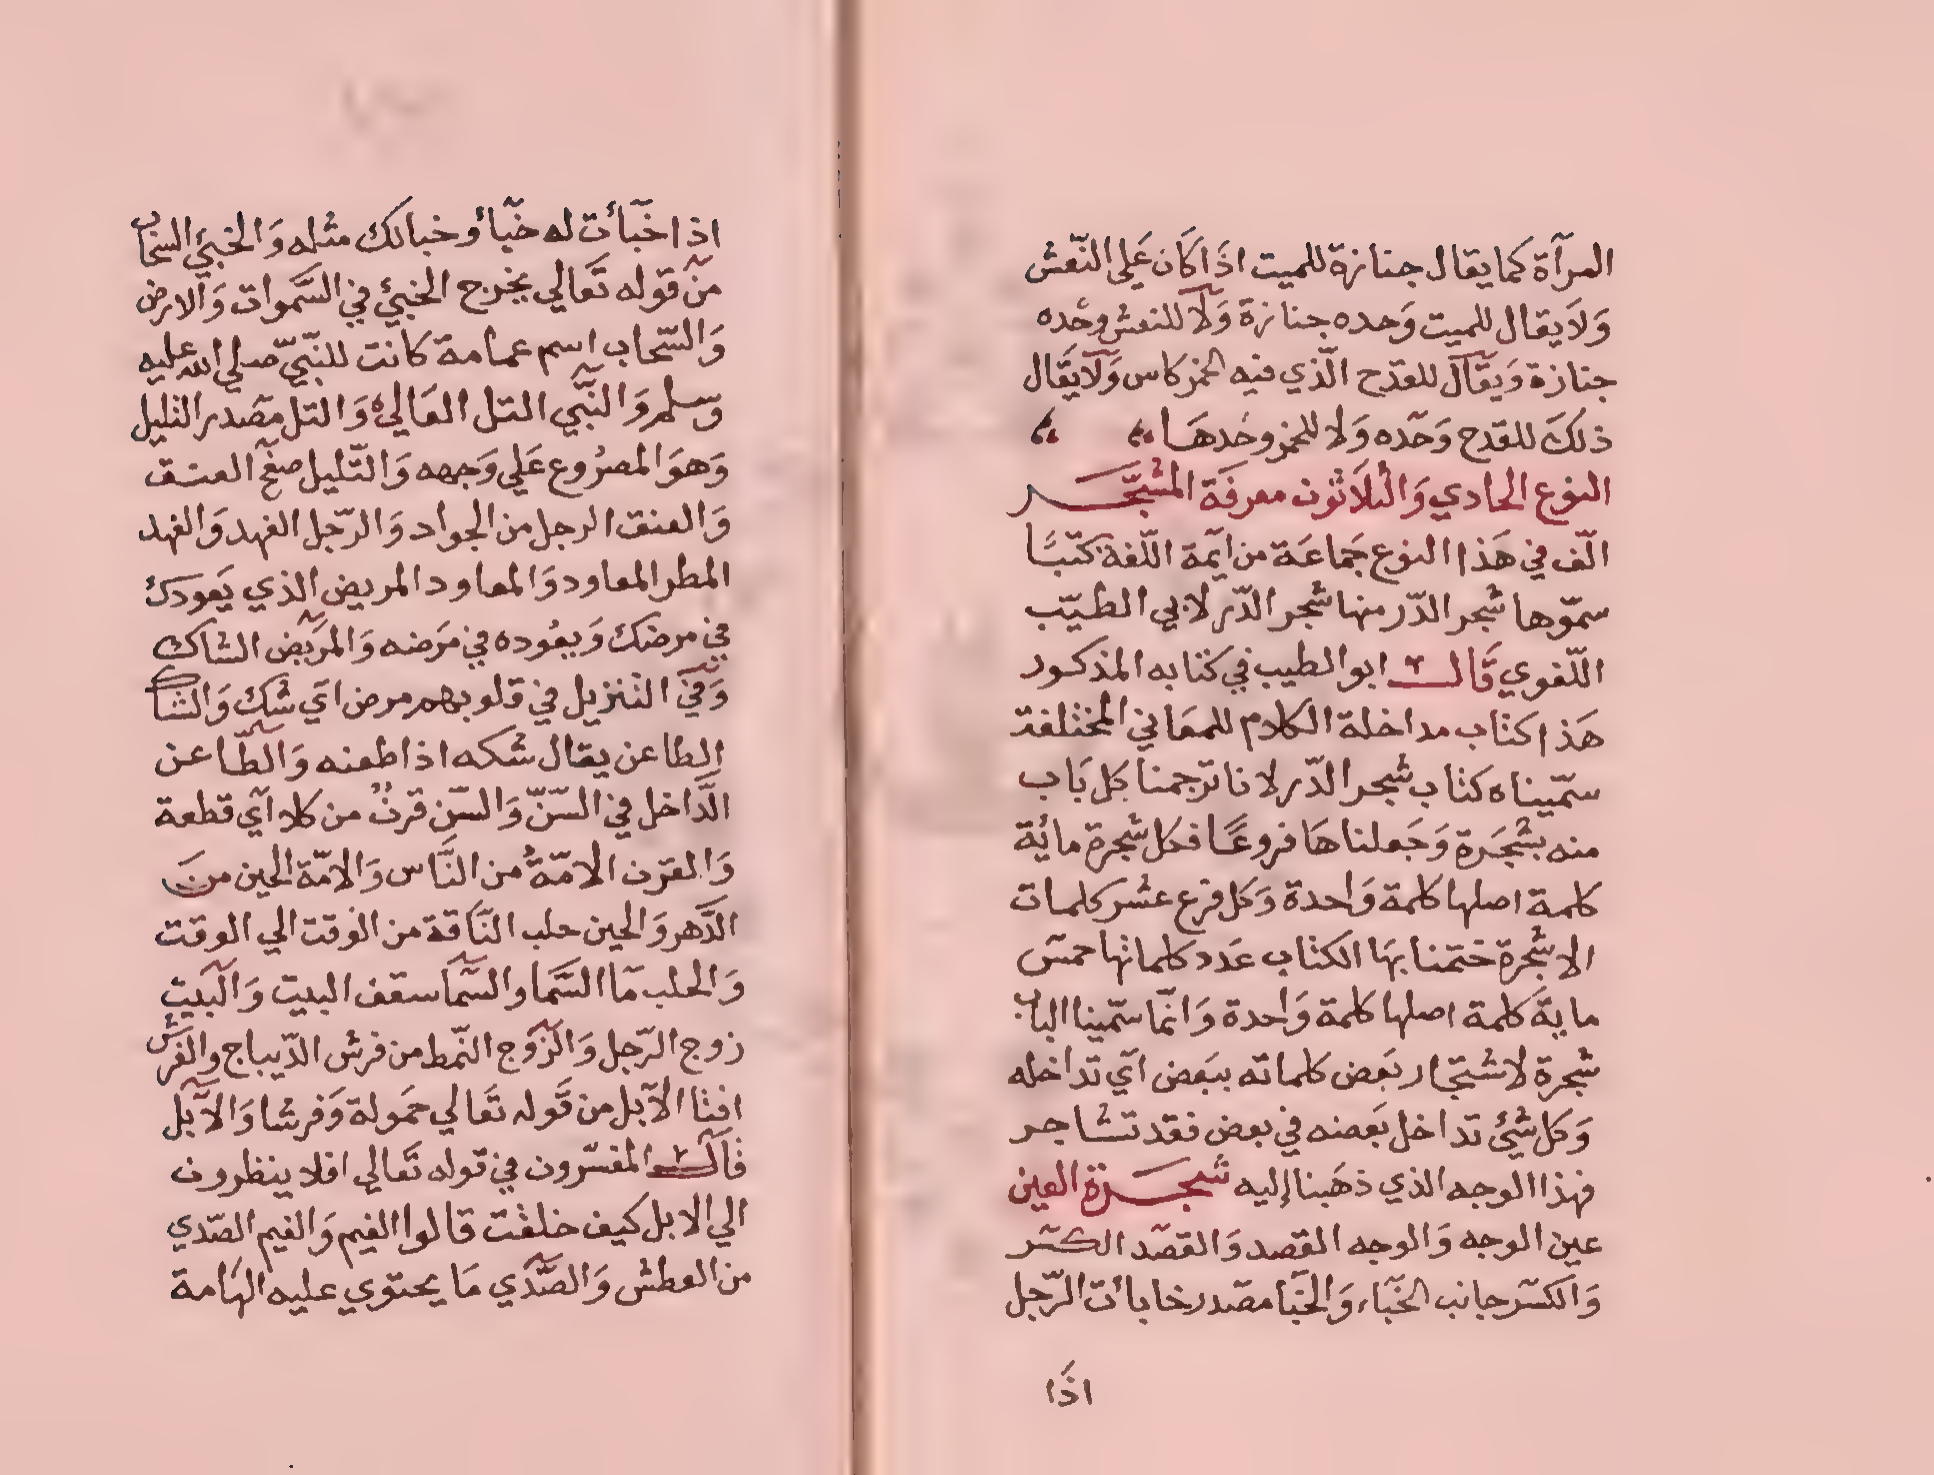 المرآة كما يقال جنازة للميت اذَا كَان عَلي النّعش
وَلَا يقال للميت وَحده جنازة وَلَا للنعش وحْده
جنازة وَيقَال للقدح الّذي فيه الخمر كاس وَلَا يقَال
ذلكَ للقدح وَحْده وَلا للخمر وحْدهَا
النوع الحادي وَالثلَاثون معرفَة المشجّر
الّف في هَذا النوع جَماعَة من ايمة اللّغة كتبًا
سمّوها شجر الدّر منها شجر الدّر لابي الطيّب
اللّغوي قَال ابو الطيب في كتابه المذكور
هَذا كتاب مداخلة الكلام للمعَاني المختلفة
سمّيناه كتاب شجر الدّر لانا ترجمنا كل بَاب
منه بشجَرة وَجَعلنا هَا فروعًا فكل شجرة ماية
كلمة اصلها كلمة وَاحدة وَكل فرع عشر كلمات
الا شجرة ختمنا بهَا الكتاب عَدد كلماتها خمس
مايةَ كلمة اصلها كلمة وَاحدة وَانّما سمّينا الباب
شجرة لاشتجار بَعض كلماته ببَعض اَي تداخله
وَكل شئ تداخل بَعضه في بعض فقد تشاجر
فهذا الوجه الذي ذهَبنا إليه شجَرة العين
عين الوجه وَالوجه القصد وَالقصْد الكسْر
وَالكسْر جانب الخبَاء وَالخبَا مصْدر خابات الرّجل
اذَا
اذا خبَأت له خبَأ وخبا لك مثله وَالخبئ السحَاب
من قوله تَعَالي يخرج الخبئ في السَّموات وَالارض
وَالسّحاب اسم عمامة كانت للنّبيّ صلي الله عليه
وَسلم وَالنّبي التل العَالي وَالتل مصْدر التليل
وَهوَ المصْرُوع عَلي وَجهه وَالتّليل صفح العنق
وَالعنق الرجل من الجراد وَالرّجل العهد وَالعهد
المطر المعاود وَالمعاود المريض الذي يَعودك
في مرضك وَيعُوده في مَرَضه وَالمرَيض الشاك
وَفي التنزيل في قلوبهم مرض اَي شَك وَالشاك
الطاعن يقال شكه اذا طعنه وَالطّاعن
الدَّاخل في السّنّ وَالسّن قرنٌ من كلا اَي قطعة
وَالقرن الامّةُ من النَّاس وَالامّة الحين منَ
الدَّهر وَالحين حلب النّاقة من الوقت الي الوقت
وَالحلب مَا السَّما والسَّما سقف البيت وَالبيت
زوج الرّجل وَالزّوج النّمط من فرش الدّيباج والفرَش
افتا الابل من قَوله تَعَالي حَمولة وَفرشا وَالابل
قَال المفسّرون في قوله تَعَالي افلا ينظرون
الي الابل كيف خلقت قالوا الغيم وَالغيم الصّدي
من العطش وَالصَّدي مَا يحتوي عليه الهَامة